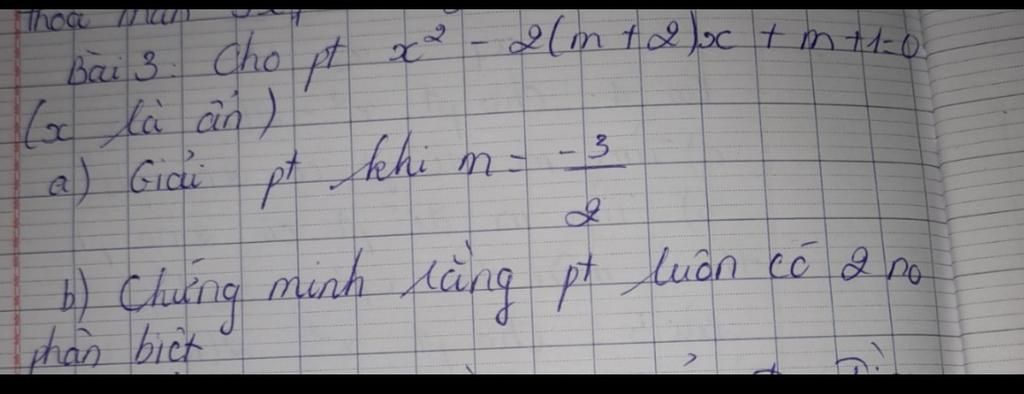 thoả mãn
Bài 3: Cho pt x² - 2(m+2)x + m+1=0
(x là ẩn)
a) Giải pt khi m = -3/2
b) Chứng minh rằng pt luôn có 2 no
phân biệt